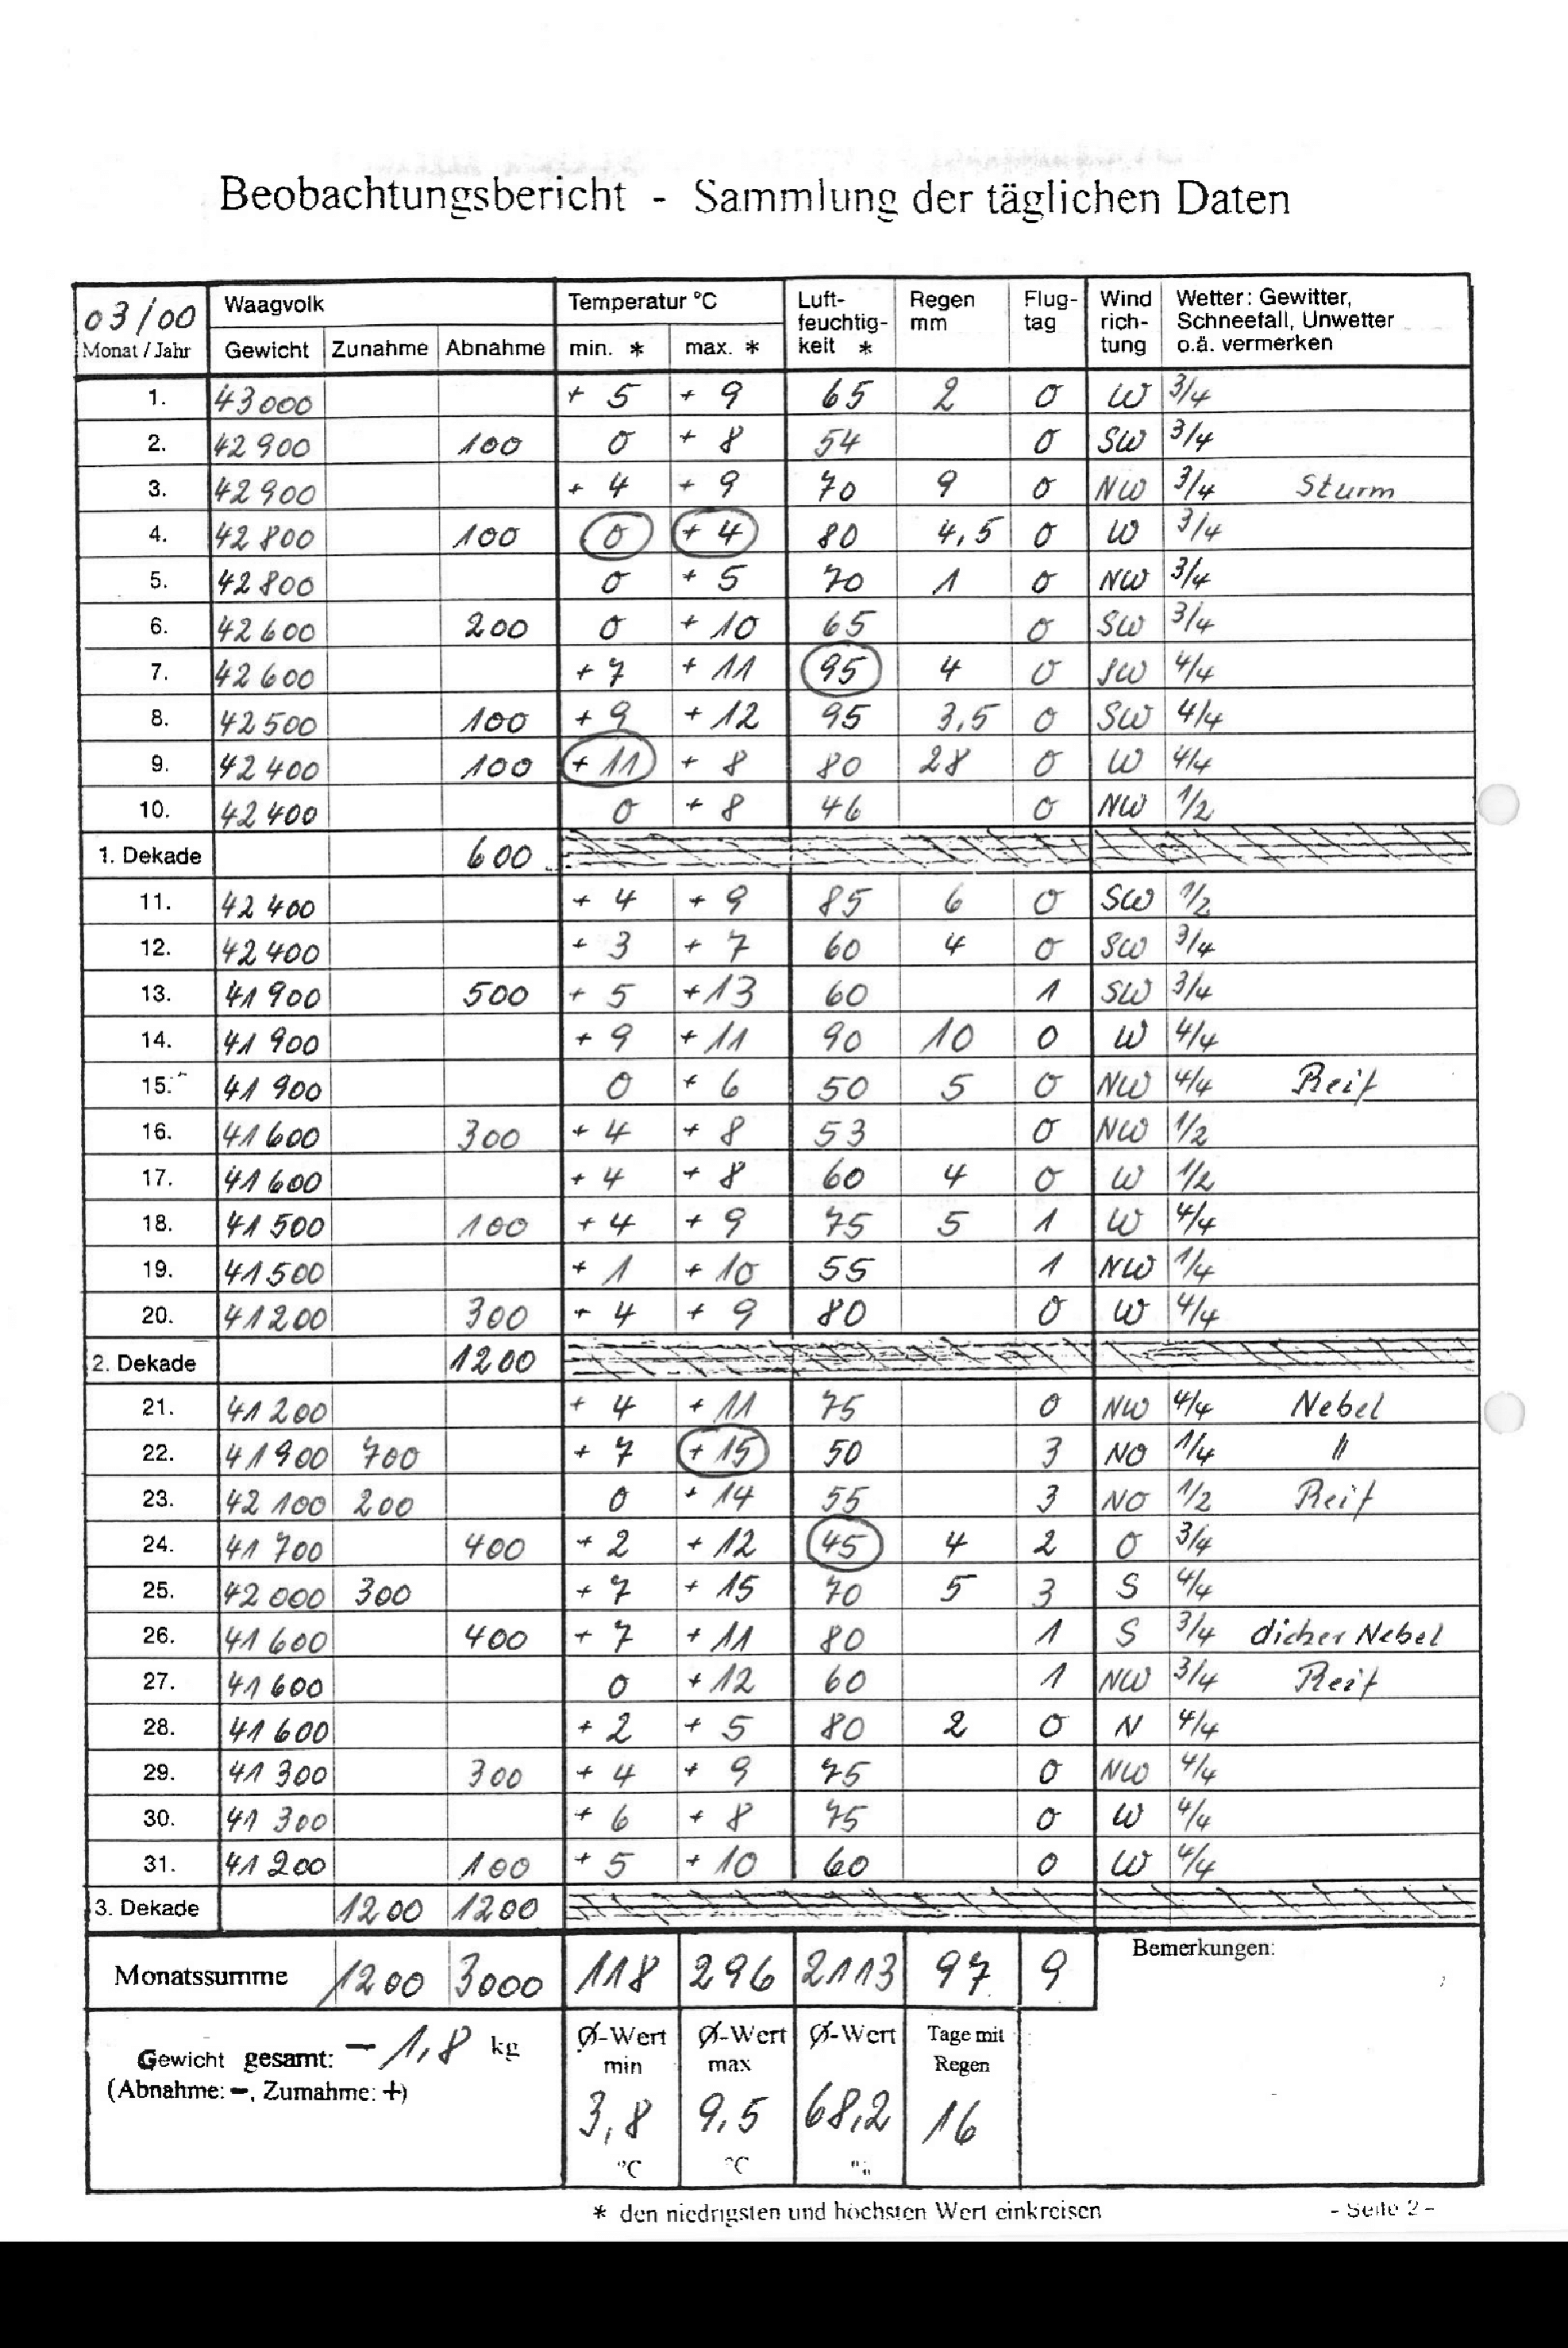 Beobachtungsbericht - Sammlung der täglichen Daten
03/00 Waagvolk Temperatur °C Luft- Regen Flug- Wind Wetter: Gewitter,
feuchtig- mm tag rich- Schneefall, Unwetter
Monat / Jahr Gewicht Zunahme Abnahme min. * max. * keit * tung o.ä. vermerken
1. 43000 + 5 + 9 65 2 0 W 3/4
2. 42900 100 0 + 8 54 0 SW 3/4
3. 42900 + 4 + 9 70 9 0 NW 3/4 Sturm
4. 42800 100 0 + 4 80 4,5 0 W 3/4
5. 42800 0 + 5 70 1 0 NW 3/4
6. 42600 200 0 + 10 65 0 SW 3/4
7. 42600 + 7 + 11 95 4 0 SW 4/4
8. 42500 100 + 9 + 12 95 3,5 0 SW 4/4
9. 42400 100 + 11 + 8 80 28 0 W 4/4
10. 42400 0 + 8 46 0 NW 1/2
1. Dekade 600
11. 42400 + 4 + 9 85 6 0 SW 1/2
12. 42400 + 3 + 7 60 4 0 SW 3/4
13. 41900 500 + 5 +13 60 1 SW 3/4
14. 41900 + 9 + 11 90 10 0 W 4/4
15. 41900 0 + 6 50 5 0 NW 4/4 Reif
16. 41600 300 + 4 + 8 53 0 NW 1/2
17. 41600 + 4 + 8 60 4 0 W 1/2
18. 41500 100 + 4 + 9 75 5 1 W 4/4
19. 41500 + 1 + 10 55 1 NW 1/4
20. 41200 300 + 4 + 9 80 0 W 4/4
2. Dekade 1200
21. 41200 + 4 + 11 75 0 NW 4/4 Nebel
22. 41900 700 + 7 + 15 50 3 NO 1/4 "
23. 42100 200 0 + 14 55 3 NO 1/2 Reif
24. 41700 400 + 2 + 12 45 4 2 O 3/4
25. 42000 300 + 7 + 15 70 5 3 S 4/4
26. 41600 400 + 7 + 11 80 1 S 3/4 dicker Nebel
27. 41600 0 + 12 60 1 NW 3/4 Reif
28. 41600 + 2 + 5 80 2 0 N 4/4
29. 41300 300 + 4 + 9 75 0 NW 4/4
30. 41300 + 6 + 8 75 0 W 4/4
31. 41200 100 + 5 + 10 60 0 W 4/4
3. Dekade 1200 1200
Monatssumme 1200 3000 118 296 2113 97 9 Bemerkungen:
Gewicht gesamt: - 1,8 kg Ø-Wert Ø-Wert Ø-Wert Tage mit
(Abnahme: -, Zumahme: +) min max Regen
3,8 9,5 68,2 16
°C °C %
* den niedrigsten und höchsten Wert einkreisen - Seite 2 -